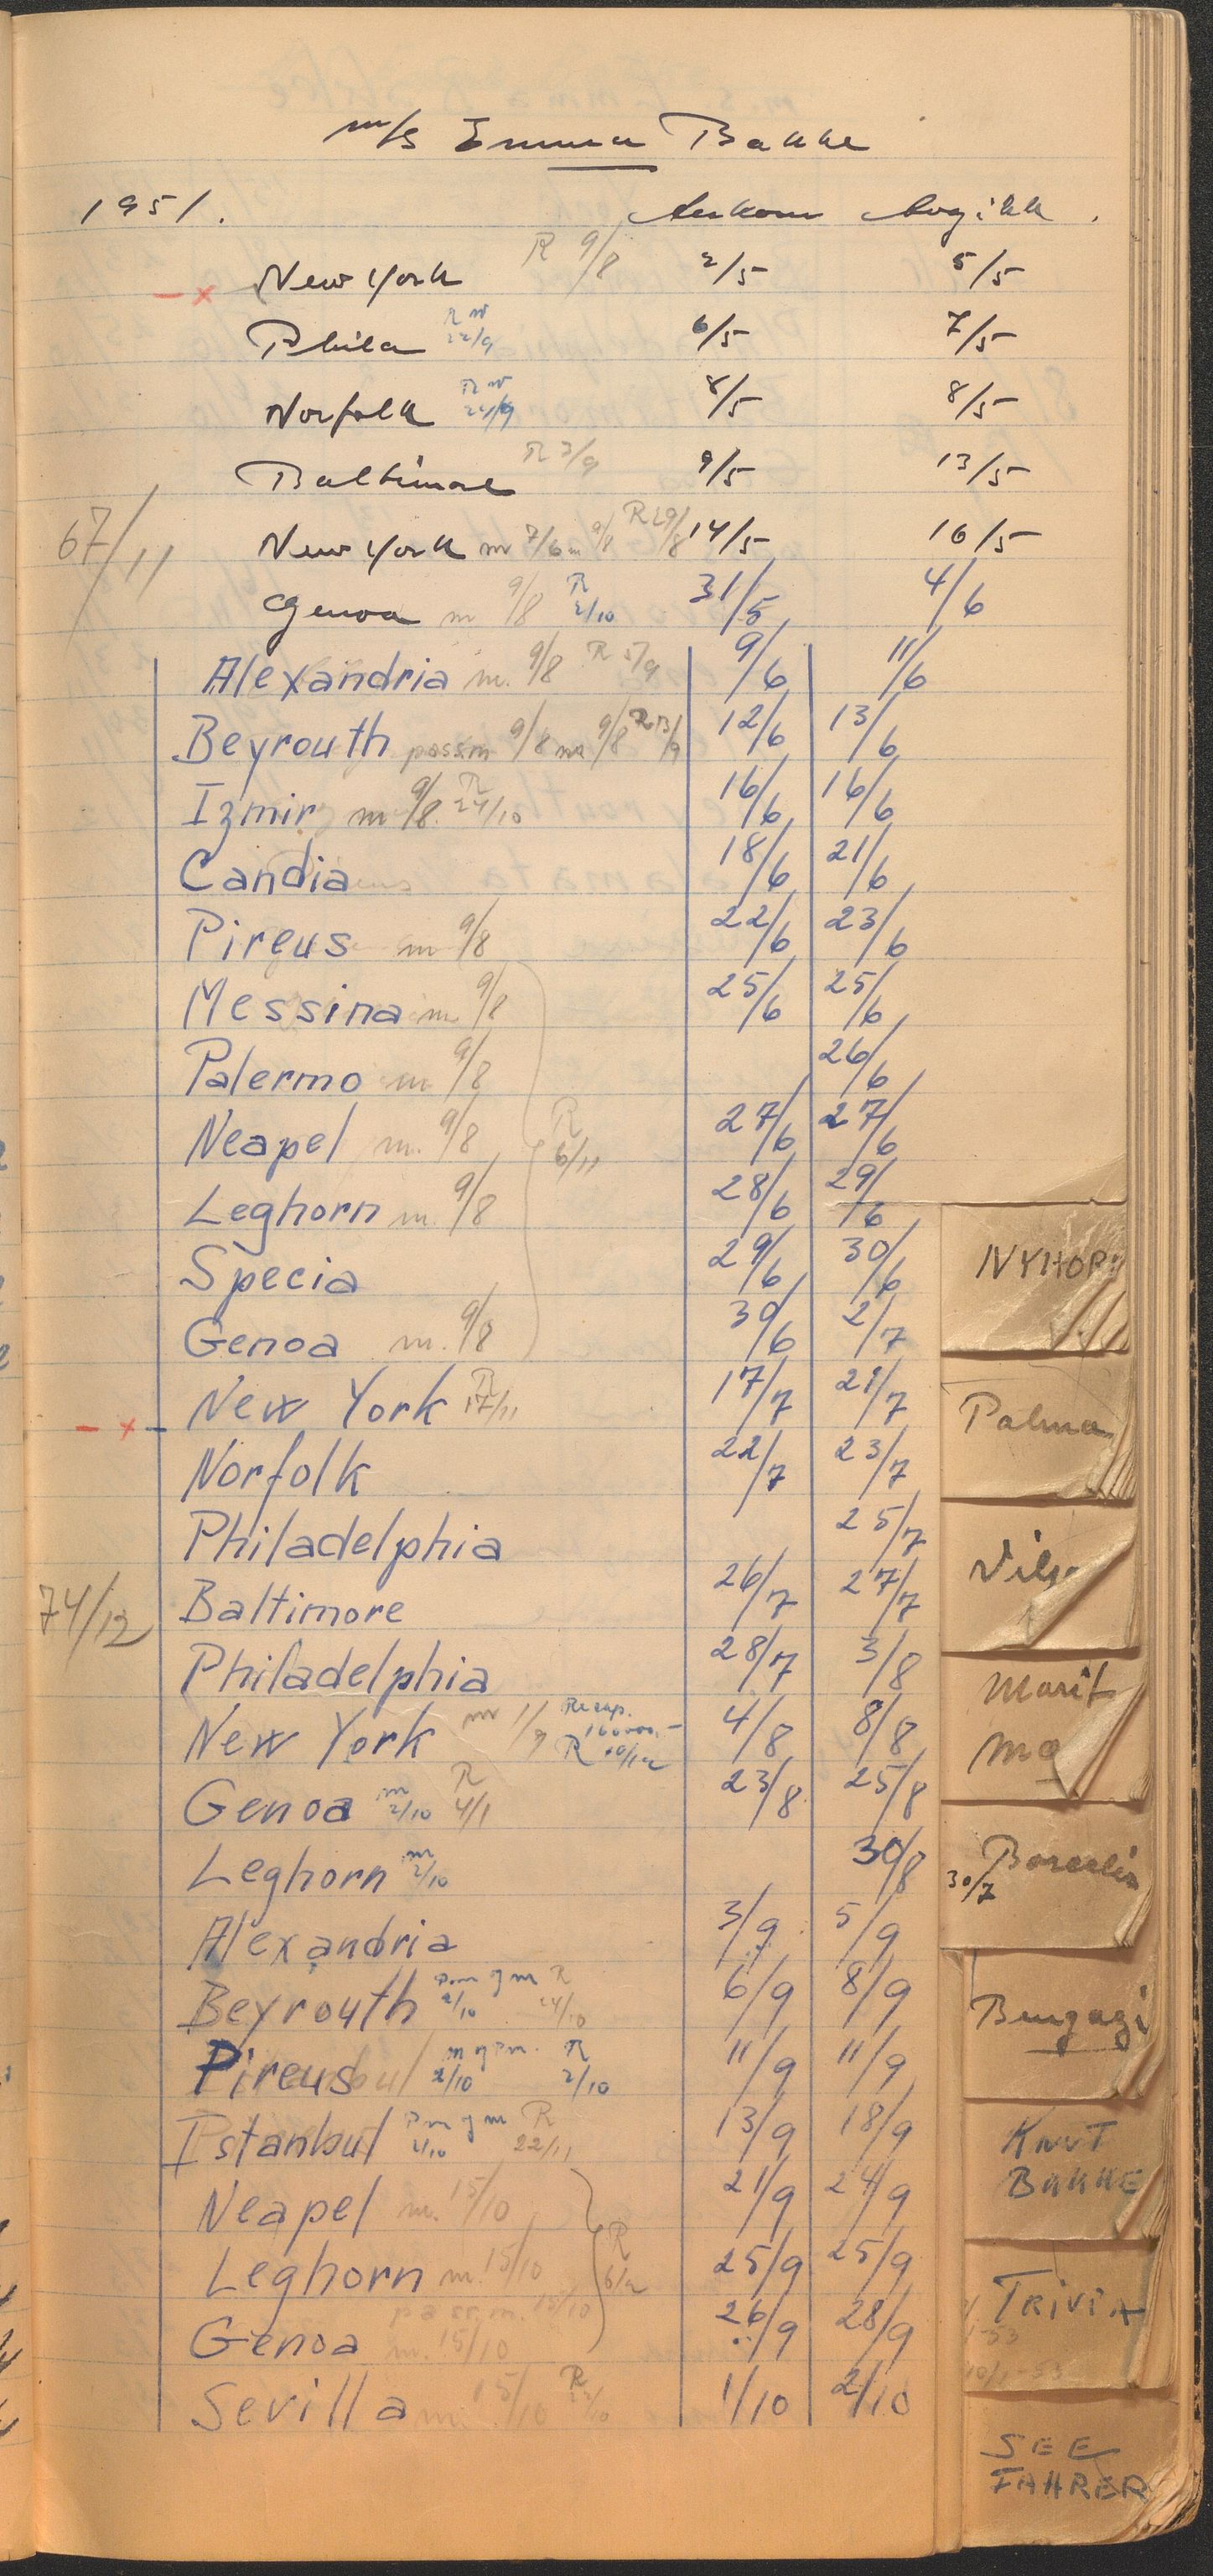 m/s Emma Bakke
1951. Ankom Avgikk.
New York R 9/8 2/5 5/5
Phila R m 22/9 6/5 7/5
Norfolk R m 8/5 8/5
Baltimore R 3/9 9/5 13/5
67/11 New York m 7/6 m 9/8 R 29/8 14/5 16/5
Genoa m 9/8 R 2/10 31/5 4/6
Alexandria m. 9/8 R 5/9 9/6 11/6
Beyrouth pass m 9/8 m 9/8 R 13/9 12/6 13/6
Izmir m 9/8. R 24/10 16/6 16/6
Candia 18/6 21/6
Pireus m 9/8 22/6 23/6
Messina m 9/8 25/6 25/6
Palermo m 9/8 26/6
Neapel m. 9/8 R 6/11 27/6 27/6
Leghorn m. 9/8 28/6 29/6
Specia 29/6 30/6
Genoa m. 9/8 30/6 2/7
New York R 17/11 17/7 21/7
Norfolk 22/7 23/7
Philadelphia 25/7
74/12 Baltimore 26/7 27/7
Philadelphia 28/7 3/8
New York m R 4/8 8/8
Genoa m 2/10 R 4/1 23/8 25/8
Leghorn m 2/10 30/8
Alexandria 3/9 5/9
Beyrouth Pm og m 2/10 R 24/10 6/9 8/9
Pireus m og Pm. 2/10 R 2/10 11/9 11/9
Istanbul Pm og m 2/10 R 22/11 13/9 18/9
Neapel m. 15/10 21/9 24/9
Leghorn m. 15/10 R 25/9 25/9
pass. m. 15/10
Genoa m. 15/10 26/9 28/9
Sevilla m. 15/10 R 1/10 2/10
NYHOR
Palma
Marit
Ma
30/7
Bengazi
KNUT
BAKKE
TRIVIA
SEE
FAHRER